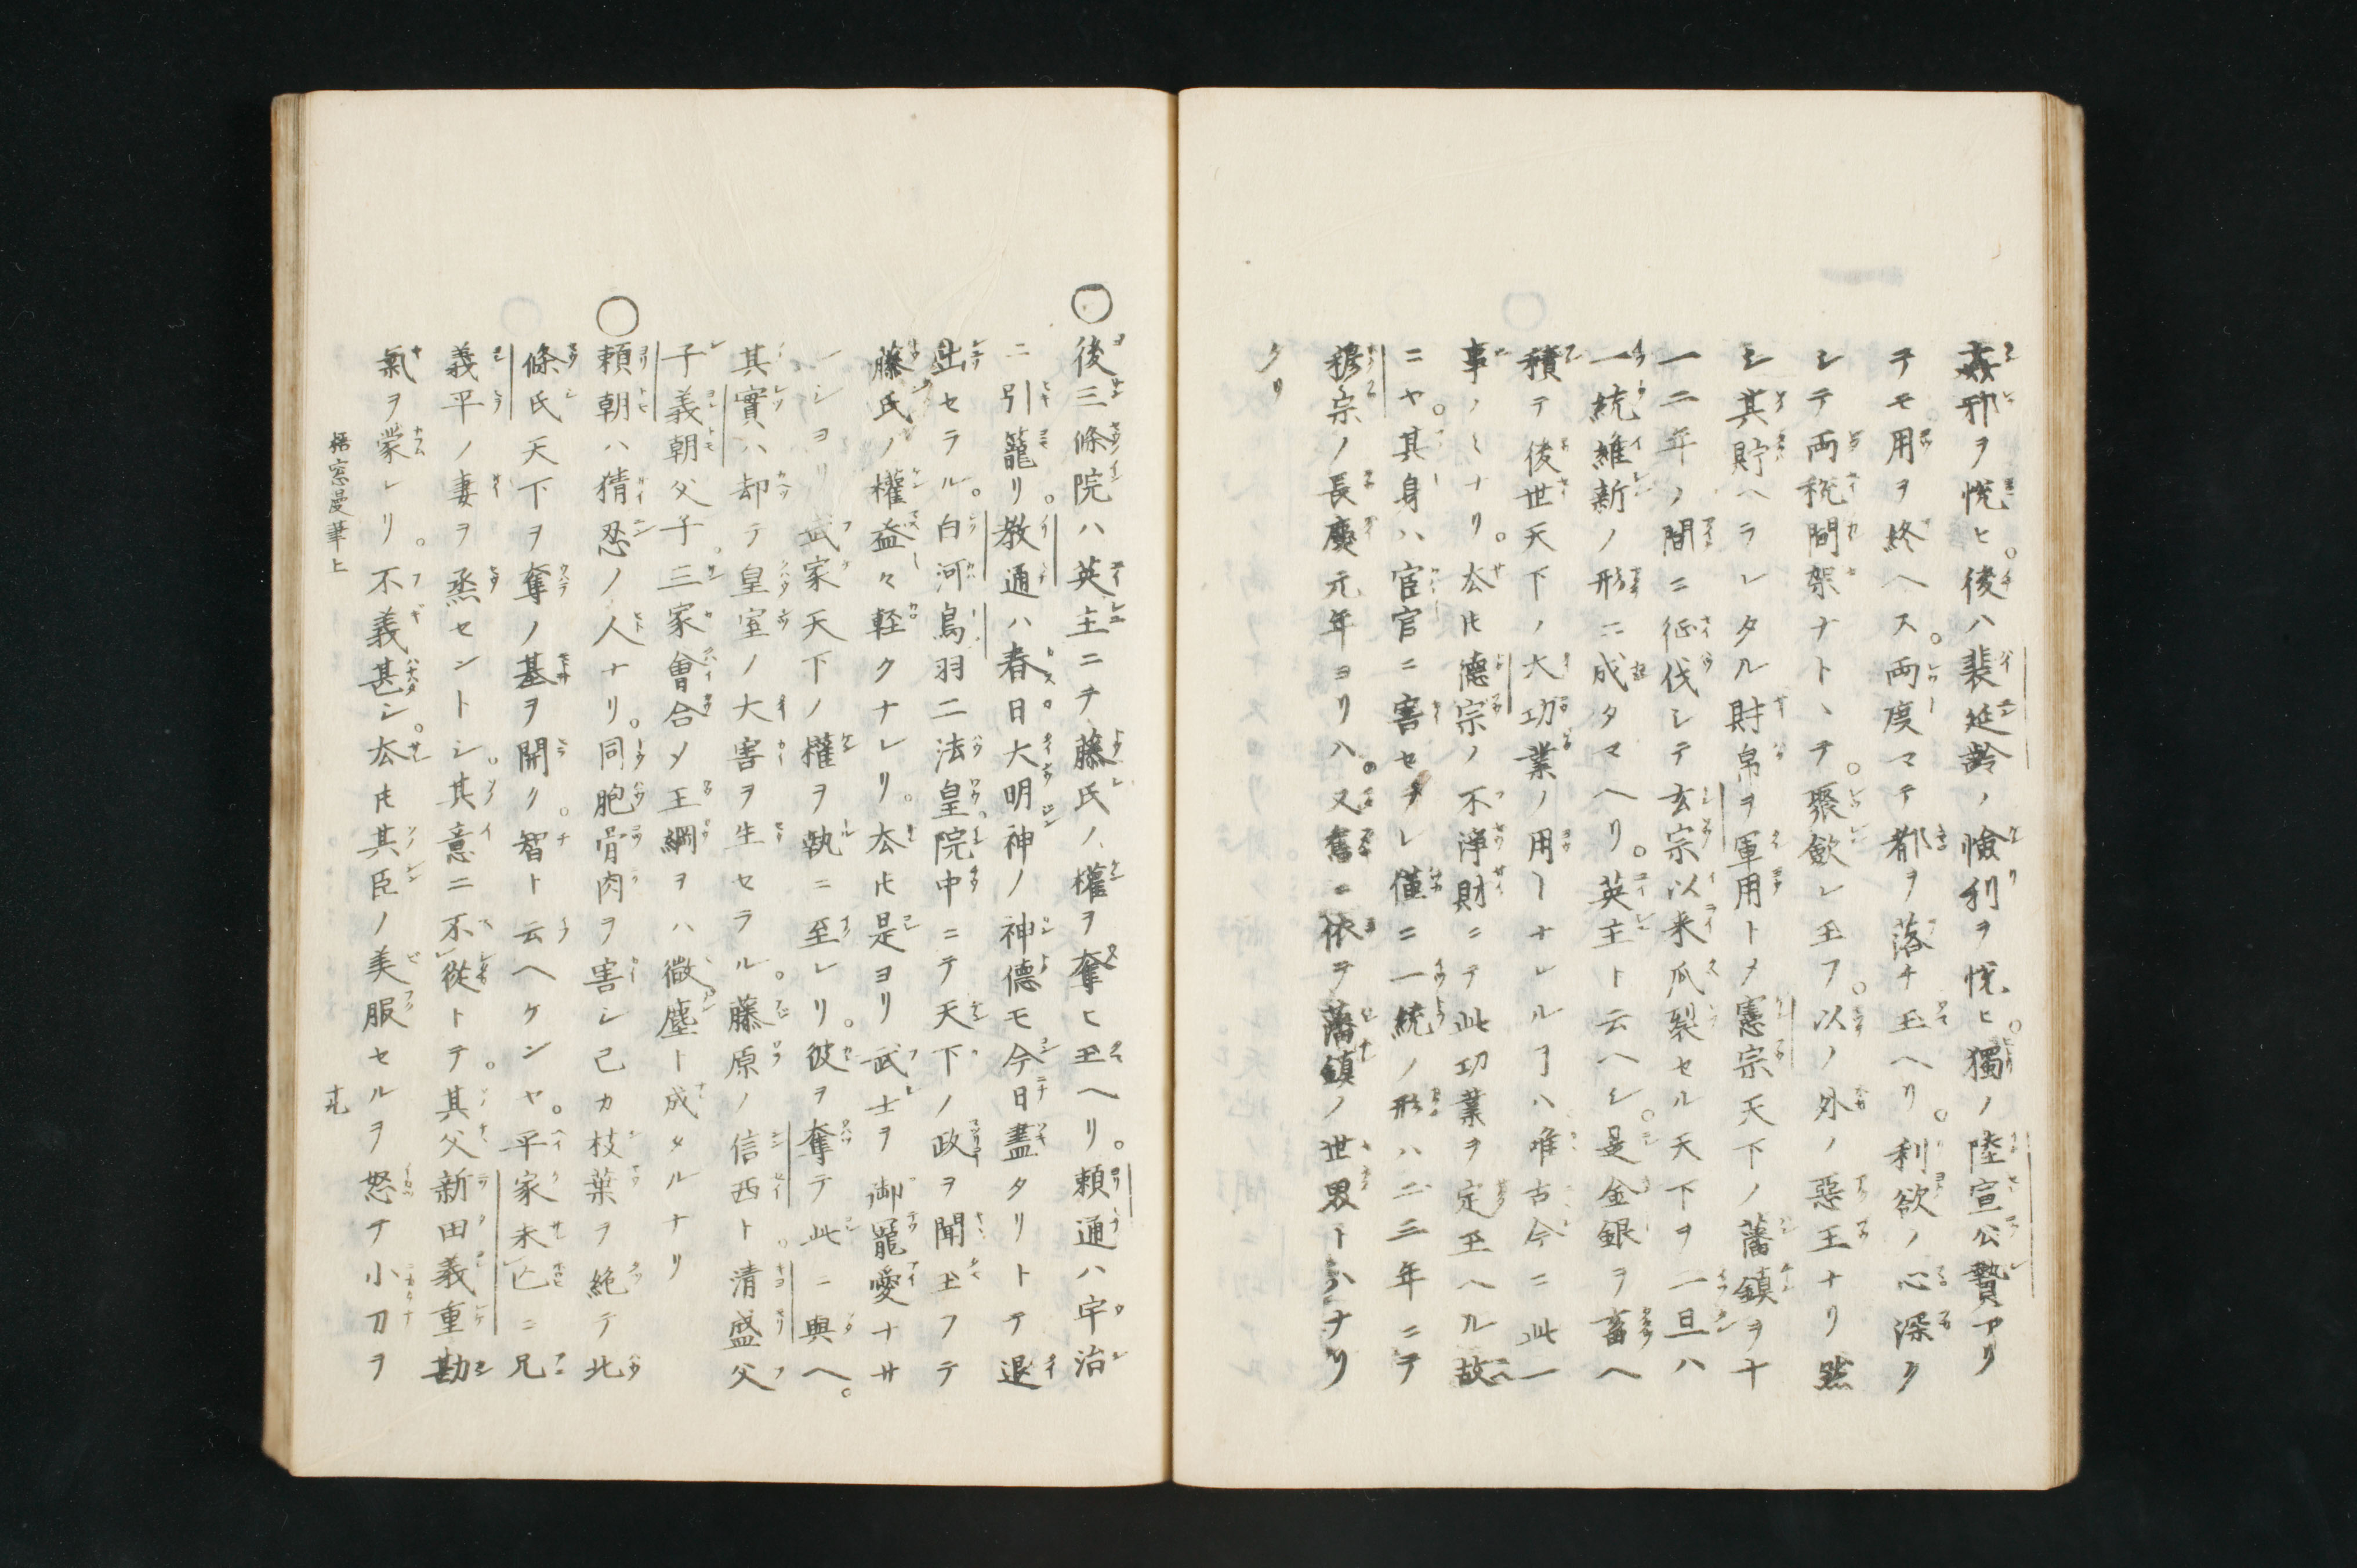 姦邪ヲ悦ヒ。後ハ裴延齡ノ憸利ヲ悦ヒ。獨ノ陸宣公贄アリ
テモ用ヲ終ヘス。両度マテ都ヲ落チ玉ヘリ。利欲ノ心深ク
シテ両税間架ナトヽテ。聚斂シ玉フ。以ノ外ノ惡王ナリ然
シ其貯ヘラレタル財帛ヲ軍用トメ憲宗天下ノ藩鎮ヲ十
一二年ノ間ニ征伐シテ玄宗以来瓜裂セル天下ヲ一旦ハ
一統維新ノ形ニ成タマヘリ。英主ト云ヘシ。是金銀ヲ畜ヘ
積テ後世天下ノ大功業ノ用ーナレルヿハ唯古今ニ此一
事ノミナリ。厺𪜈德宗ノ不淨財ニテ此功業ヲ定玉ヘル故
ニヤ。其身ハ宦官ニ害セラレ僅ニ一統ノ形ハ二三年ニテ
穆宗ノ長慶元年ヨリハ。又舊ニ依テ藩鎮ノ世界トハナリ
タリ
○後三條院ハ英主ニテ藤氏ノ權ヲ奪ヒ玉ヘリ。頼通ハ宇治
ニ引籠リ。教通ハ春日大明神ノ神德モ今日盡タリトテ退
出セラル。白河鳥羽二法皇院中ニテ天下ノ政ヲ聞玉フテ
藤氏ノ權益々軽クナレリ。厺𪜈是ヨリ武士ヲ御寵愛ナサ
レシヨリ武家天下ノ權ヲ執ニ至レリ。彼ヲ奪テ此ニ與ヘ。
其實ハ却テ皇室ノ大害ヲ生セラル。藤原ノ信西ト。清盛父
子義朝父子三家會合メ王綱ヲハ微塵ト成タルナリ
○頼朝ハ猜忍ノ人ナリ。同胞骨肉ヲ害シ己カ枝葉ヲ絶テ北
條氏天下ヲ奪ノ基ヲ開ク。智ト云ヘケンヤ。平家未亡ニ兄
義平ノ妻ヲ烝セントシ。其意ニ不從トテ。其父新田義重勘
氣ヲ蒙レリ。不義甚シ。厺𪜈其臣ノ美服セルヲ怒テ小刀ヲ
梧窓漫筆上